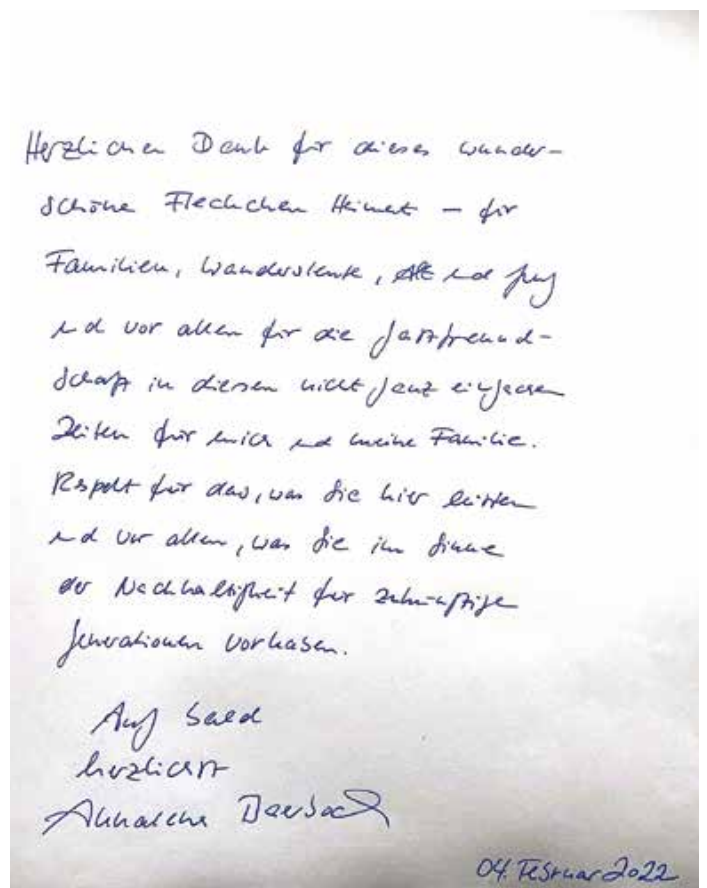 Herzlichen Dank für dieses wunder-
schöne Fleckchen Heimat – für
Familien, Wandersleute, Alt und Jung
und vor allem für die Gastfreund-
schaft in diesen nicht ganz einfachen
Zeiten für mich und meine Familie.
Respekt für das, was Sie hier leisten
und vor allem, was Sie im Sinne
der Nachhaltigkeit für zukünftige
Generationen vorhaben.
Auf bald
herzlichst
Annalena Baerbock
04. Februar 2022